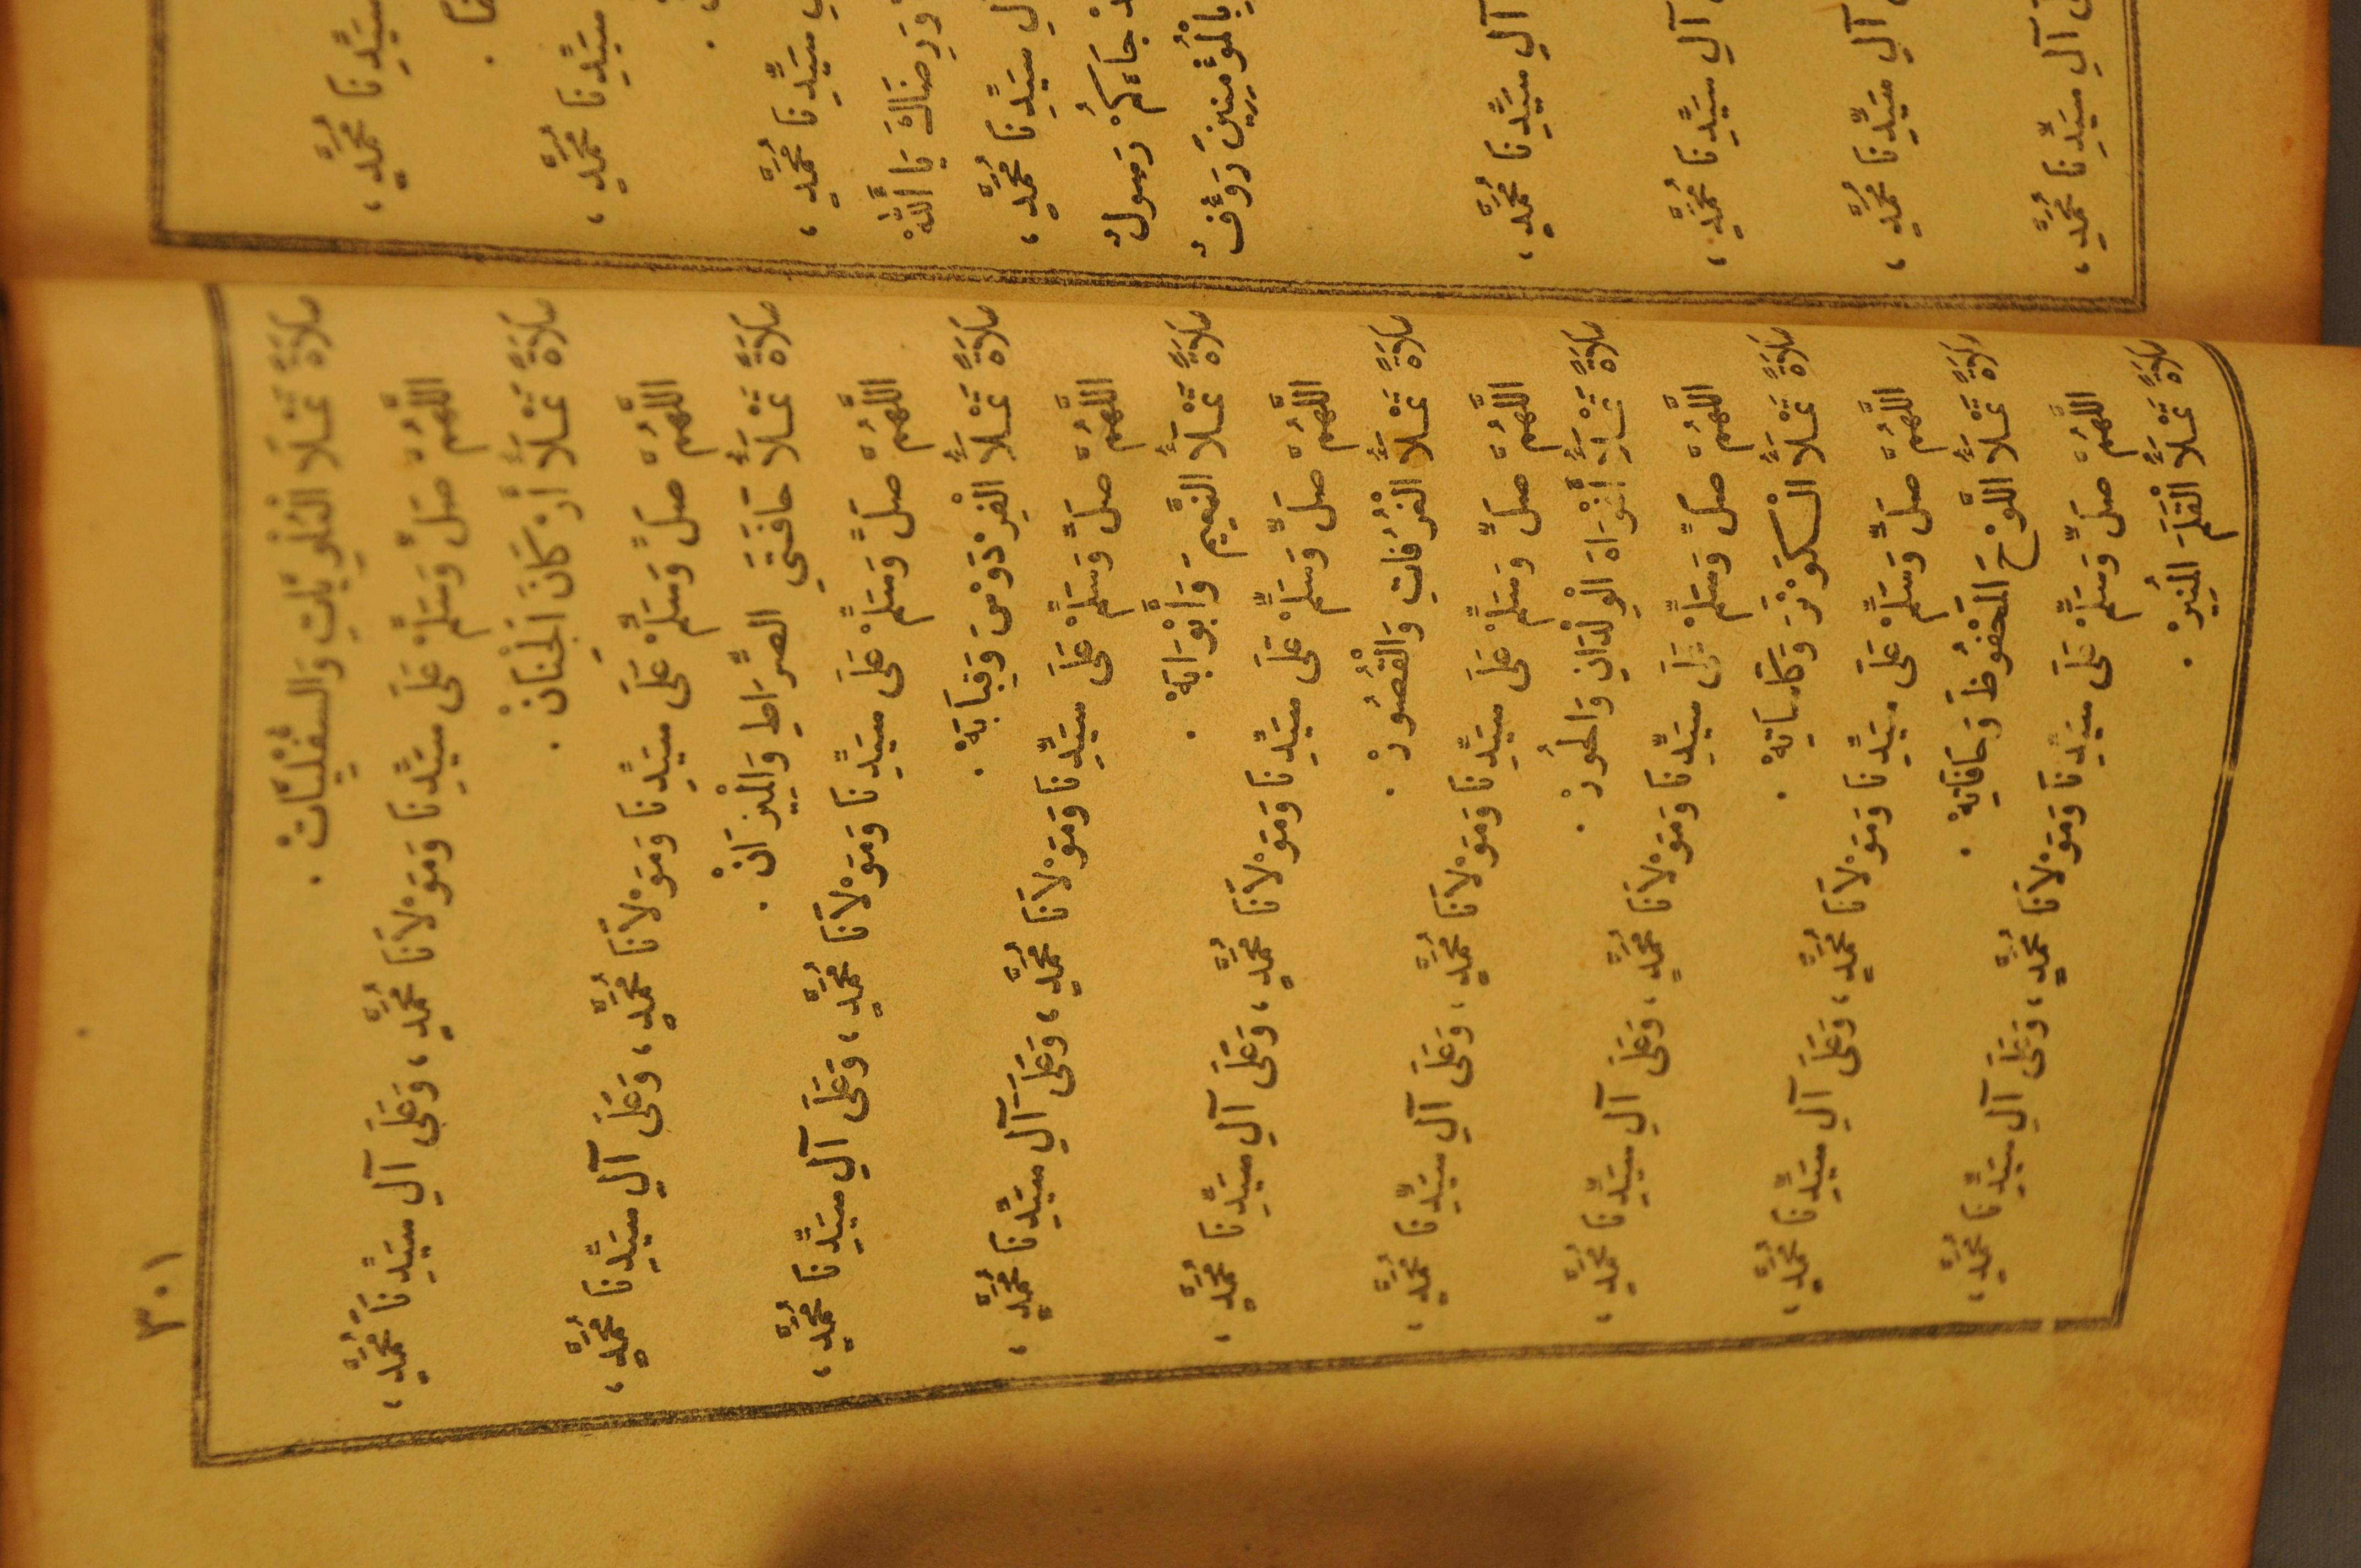 سَيِّدِنَا مُحَمَّدٍ،
سَيِّدِنَا مُحَمَّدٍ،
سَيِّدِنَا مُحَمَّدٍ،
وَرِضَاكَ يَا أَللهْ
سَيِّدِنَا مُحَمَّدٍ،
جَاءَكُمْ رَسُولٌ
بِالْمُؤْمِنِينَ رَؤُفٌ
آلِ سَيِّدِنَا مُحَمَّدٍ،
آلِ سَيِّدِنَا مُحَمَّدٍ،
آلِ سَيِّدِنَا مُحَمَّدٍ،
آلِ سَيِّدِنَا مُحَمَّدٍ،
٣٠١
صَلَاةً تَمْلَأُ الْعُلْوِيَّاتِ وَالسُّفْلِيَّاتْ .
اللَّهُمَّ صَلِّ وَسَلِّمْ عَلَى سَيِّدِنَا وَمَوْلَانَا مُحَمَّدٍ، وَعَلَى آلِ سَيِّدِنَا مُحَمَّدٍ،
صَلَاةً تَمْلَأُ أَرْكَانَ الْجِنَانْ .
اللَّهُمَّ صَلِّ وَسَلِّمْ عَلَى سَيِّدِنَا وَمَوْلَانَا مُحَمَّدٍ، وَعَلَى آلِ سَيِّدِنَا مُحَمَّدٍ،
صَلَاةً تَمْلَأُ حَافَتَيِ الصِّرَاطِ وَالْمِيزَانْ .
اللَّهُمَّ صَلِّ وَسَلِّمْ عَلَى سَيِّدِنَا وَمَوْلَانَا مُحَمَّدٍ، وَعَلَى آلِ سَيِّدِنَا مُحَمَّدٍ،
صَلَاةً تَمْلَأُ الْفِرْدَوْسَ وَقِبَابَهْ .
اللَّهُمَّ صَلِّ وَسَلِّمْ عَلَى سَيِّدِنَا وَمَوْلَانَا مُحَمَّدٍ، وَعَلَى آلِ سَيِّدِنَا مُحَمَّدٍ،
صَلَاةً تَمْلَأُ النَّعِيمَ وَأَبْوَابَهْ .
اللَّهُمَّ صَلِّ وَسَلِّمْ عَلَى سَيِّدِنَا وَمَوْلَانَا مُحَمَّدٍ، وَعَلَى آلِ سَيِّدِنَا مُحَمَّدٍ،
صَلَاةً تَمْلَأُ الْغُرُفَاتِ وَالْقُصُورْ .
اللَّهُمَّ صَلِّ وَسَلِّمْ عَلَى سَيِّدِنَا وَمَوْلَانَا مُحَمَّدٍ، وَعَلَى آلِ سَيِّدِنَا مُحَمَّدٍ،
صَلَاةً تَمْلَأُ أَفْوَاهَ الْوِلْدَانِ وَالْحُورْ .
اللَّهُمَّ صَلِّ وَسَلِّمْ عَلَى سَيِّدِنَا وَمَوْلَانَا مُحَمَّدٍ، وَعَلَى آلِ سَيِّدِنَا مُحَمَّدٍ،
صَلَاةً تَمْلَأُ الْكَوْثَرَ وَكَاسَاتِهْ .
اللَّهُمَّ صَلِّ وَسَلِّمْ عَلَى سَيِّدِنَا وَمَوْلَانَا مُحَمَّدٍ، وَعَلَى آلِ سَيِّدِنَا مُحَمَّدٍ،
صَلَاةً تَمْلَأُ اللَّوْحَ الْمَحْفُوظَ وَحَافَاتِهْ .
اللَّهُمَّ صَلِّ وَسَلِّمْ عَلَى سَيِّدِنَا وَمَوْلَانَا مُحَمَّدٍ، وَعَلَى آلِ سَيِّدِنَا مُحَمَّدٍ،
صَلَاةً تَمْلَأُ الْقَلَمَ الْمُنِيرْ .